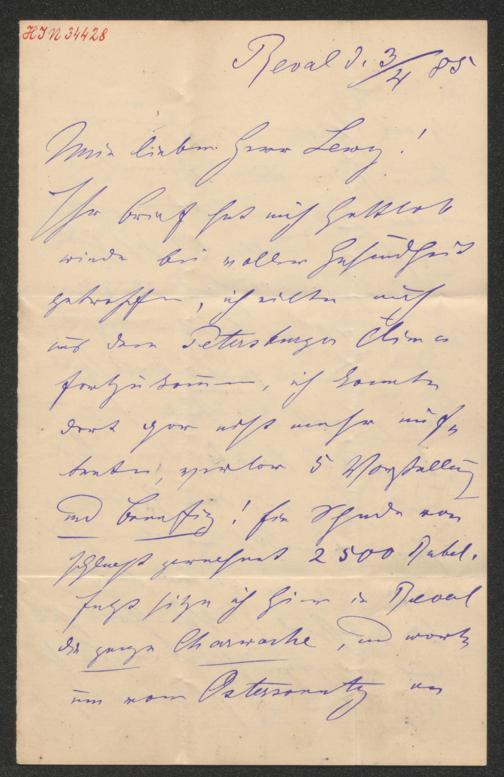 HIN 34428
Reval d. 3/4 85
Mein lieber Herr Lewy!
Ihr Brief hat mich Gottlob
wieder bei voller Gesundheit
getroffen, ich eilte mich
aus dem Petersburger Clima
fortzukommen, ich konnte
dort gar nicht mehr auf-
treten, verlor 5 Vorstellung
und Benefiz! Ein Schade von
schlecht gerechnet 2500 Rubel.
Jetzt sitze ich hier in Reval
die ganze Charwoche, und warte
um vom Ostersonntag an